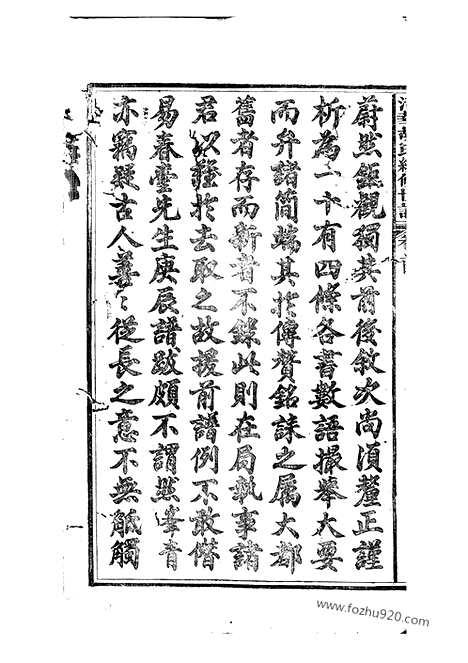 蔚然鉅觀獨其前後敘次尚須釐正謹
析為一十有四條各書數語撮舉大要
而弁諸簡端其於傳贊銘誄之屬大都
舊者存而新者不錄此則在局執事諸
君以難於去取之故援前譜例不敢僭
易春墅先生庚辰譜跋頗不謂然峯青
亦竊疑古人善善從長之意不無觝觸
www.fozhu920.com